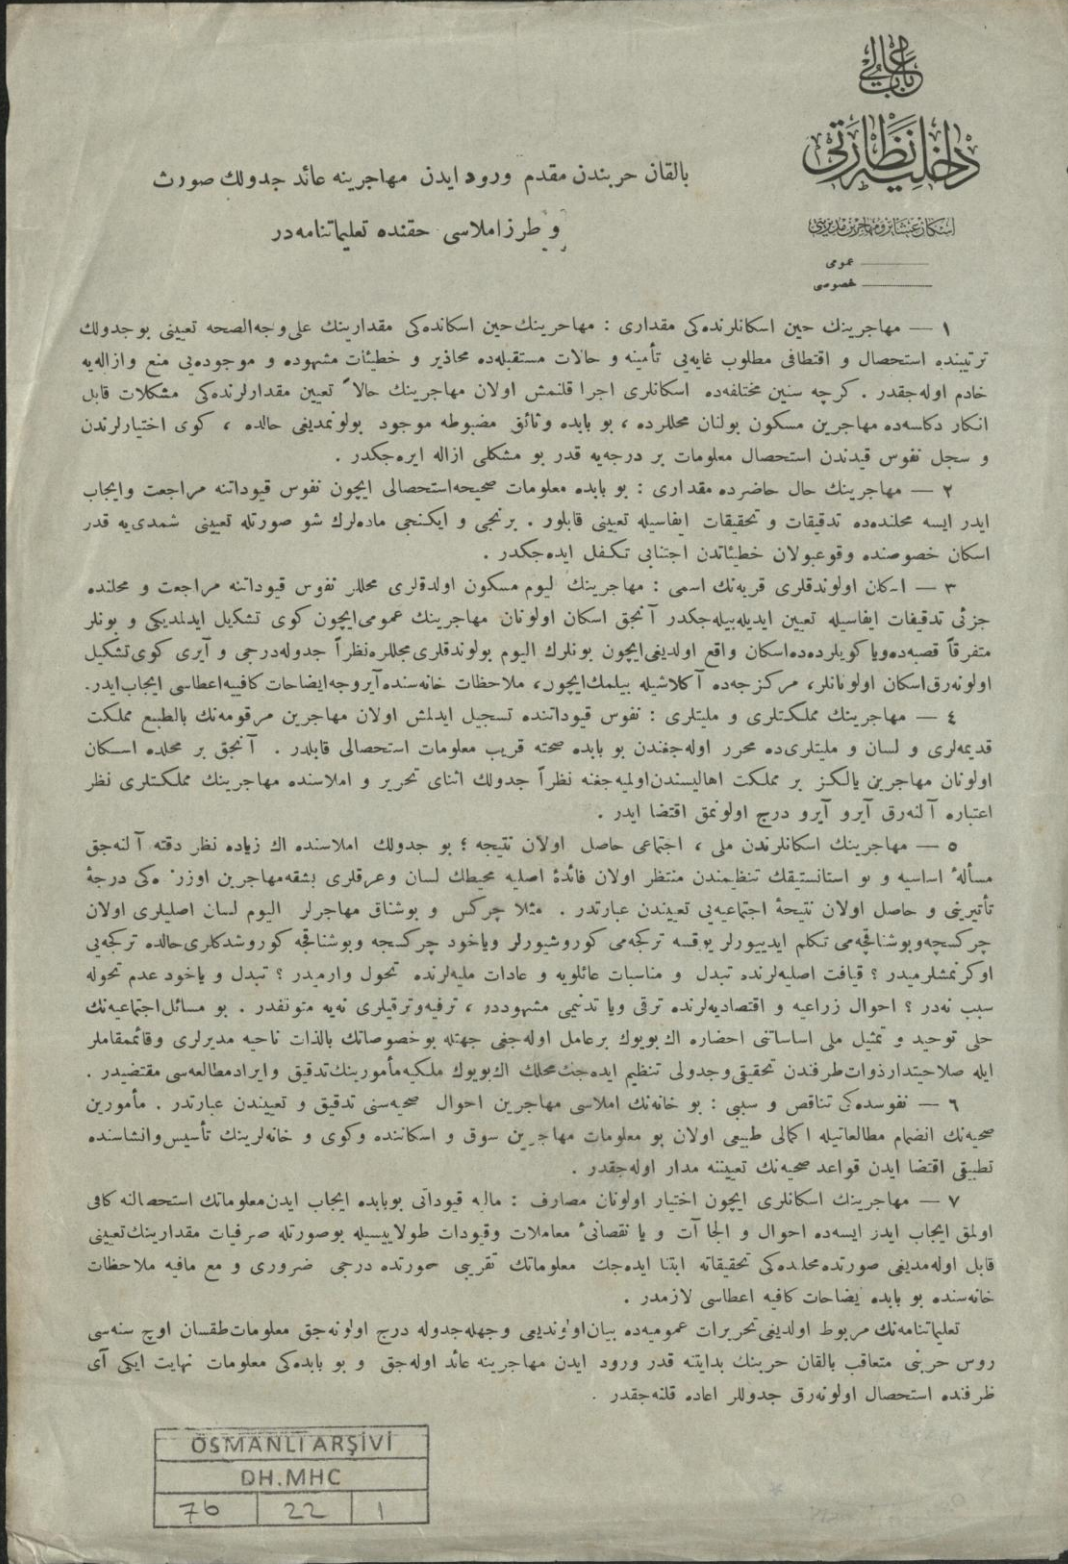 باب عالی
داخلیه نظارتی
اسکان عشائر و مهاجرین مدیریتی
عمومی
خصوصی
بالقان حربندن مقدم ورود ایدن مهاجرینه عائد جدولك صورت
و طرز املاسی حقنده تعلیماتنامه‌در
١ — مهاجرینك حین اسکانلرنده‌کی مقداری : مهاجرینك حین اسکانده‌کی مقدارینك علی وجه‌الصحه تعیینی بو جدولك
ترتیبنده استحصال و اقتطافی مطلوب غایه‌یی تأمینه و حالات مستقبله‌ده محاذیر و خطیئات مشهوده و موجوده‌یی منع و ازاله‌یه
خادم اوله‌جقدر . کرچه سنین مختلفه‌ده اسکانلری اجرا قلنمش اولان مهاجرینك حالاً تعیین مقدارلرنده‌کی مشکلات قابل
انکار دکلسه‌ده مهاجرین مسکون بولنان محللرده ، بو بابده وثائق مضبوطه موجود بولونمدیغی حالده ، کوی اختیارلرندن
و سجل نفوس قیدندن استحصال معلومات بر درجه‌یه قدر بو مشکلی ازاله ایره‌جکدر .
٢ — مهاجرینك حال حاضرده مقداری : بو بابده معلومات صحیحه استحصالی ایچون نفوس قیوداتنه مراجعت و ایجاب
ایدر ایسه محلنده‌ده تدقیقات و تحقیقات ایفاسیله تعیینی قابلدر . برنجی و ایکنجی ماده‌لرك شو صورتله تعیینی شمدی‌یه قدر
اسکان خصوصنده وقوعبولان خطیئاتدن اجتنابی تکفل ایده‌جکدر .
٣ — اسکان اولوندقلری قریه‌نك اسمی : مهاجرینك الیوم مسکون اولدقلری محللر نفوس قیوداتنه مراجعت و محلنده
جزئی تدقیقات ایفاسیله تعیین ایدیله‌بیله‌جکدر آنجق اسکان اولونان مهاجرینك عمومی ایچون کوی تشکیل ایدلمدیکی و بونلر
متفرقاً قصبه‌ده ویا کویلرده‌ده اسکان واقع اولدیغی ایچون بونلرك الیوم بولوندقلری محللره نظراً جدوله درجی و آیری کوی تشکیل
اولونه‌رق اسکان اولونانلر، مرکزجه‌ده آکلاشیله بیلمك ایچون، ملاحظات خانه‌سنده آیروجه ایضاحات کافیه اعطاسی ایجاب ایدر.
٤ — مهاجرینك مملکتلری و ملیتلری : نفوس قیوداتنده تسجیل ایدلمش اولان مهاجرین مرقومه‌نك بالطبع مملکت
قدیمه‌لری و لسان و ملیتلری‌ده محرر اوله‌جغندن بو بابده صحته قریب معلومات استحصالی قابلدر . آنجق بر محلده اسکان
اولونان مهاجرین یالکز بر مملکت اهالیسندن اولمیه‌جغنه نظراً جدولك اثنای تحریر و املاسنده مهاجرینك مملکتلری نظر
اعتباره آلنه‌رق آیرو آیرو درج اولونمق اقتضا ایدر .
٥ — مهاجرینك اسکانلرندن ملی ، اجتماعی حاصل اولان نتیجه ؛ بو جدولك املاسنده اك زیاده نظر دقته آلنه‌جق
مسألهٔ اساسیه و بو استاتستیقك تنظیمندن منتظر اولان فائدهٔ اصلیه محیطك لسان و عرقلری بشقه مهاجرین اوزرنده‌کی درجهٔ
تأثیرینی و حاصل اولان نتیجهٔ اجتماعیه‌یی تعییندن عبارتدر . مثلا چرکس و بوشناق مهاجرلر الیوم لسان اصلیلری اولان
چرکسجه و بوشناقجه‌می تکلم ایدییورلر یوقسه ترکجه‌می کوروشیورلر ویاخود چرکسجه و بوشناقجه کوروشدکلری حالده ترکجه‌یی
اوکرنمشلرمیدر ؟ قیافت اصلیه‌لرنده تبدل و مناسبات عائلویه و عادات ملیه‌لرنده تحول وارمیدر ؟ تبدل و یاخود عدم تحوله
سبب نه‌در ؟ احوال زراعیه و اقتصادیه‌لرنده ترقی ویا تدنیمی مشهوددر ، ترفیه و ترقیلری نه‌یه متوقفدر . بو مسائل اجتماعیه‌نك
حلی توحید و تمثیل ملی اساساتنی احضاره اك بویوك بر عامل اوله‌جغی جهتله بو خصوصاتك بالذات ناحیه مدیرلری و قائممقاملر
ایله صلاحیتدار ذوات طرفندن تحقیقی و جدولی تنظیم ایده‌جك محلك اك بویوك ملکیه مأمورینك تدقیق و ایراد مطالعه‌سی مقتضیدر .
٦ — نفوسده‌کی تناقص و سببی : بو خانه‌نك املاسی مهاجرین احوال صحیه‌سنی تدقیق و تعییندن عبارتدر . مأمورین
صحیه‌نك انضمام مطالعاتیله اکمالی طبیعی اولان بو معلومات مهاجرین سوق و اسکاننده و کوی و خانه‌لرینك تأسیس و انشاسنده
تطبیقی اقتضا ایدن قواعد صحیه‌نك تعییننه مدار اوله‌جقدر .
٧ — مهاجرینك اسکانلری ایچون اختیار اولونان مصارف : مالیه قیوداتی بو بابده ایجاب ایدن معلوماتك استحصالنه کافی
اولمق ایجاب ایدر ایسه‌ده احوال و الجاآت و یا نقصانیٔ معاملات و قیودات طولاییسیله بو صورتله صرفیات مقدارینك تعیینی
قابل اوله‌مدیغی صورتده محلنده‌کی تحقیقاته ابتنا ایده‌جك معلوماتك تقریبی صورتده درجی ضروری و مع مافیه ملاحظات
خانه‌سنده بو بابده ایضاحات کافیه اعطاسی لازمدر .
تعلیماتنامه‌نك مربوط اولدیغی تحریرات عمومیه‌ده بیان اولوندیغی وجهله جدوله درج اولونه‌جق معلومات طقسان اوچ سنه‌سی
روس حربنی متعاقب بالقان حربنك بدایتنه قدر ورود ایدن مهاجرینه عائد اوله‌جق و بو بابده‌کی معلومات نهایت ایکی آی
ظرفنده استحصال اولونه‌رق جدوللر اعاده قلنه‌جقدر .
OSMANLI ARŞİVİ
DH.MHC
76 22 1